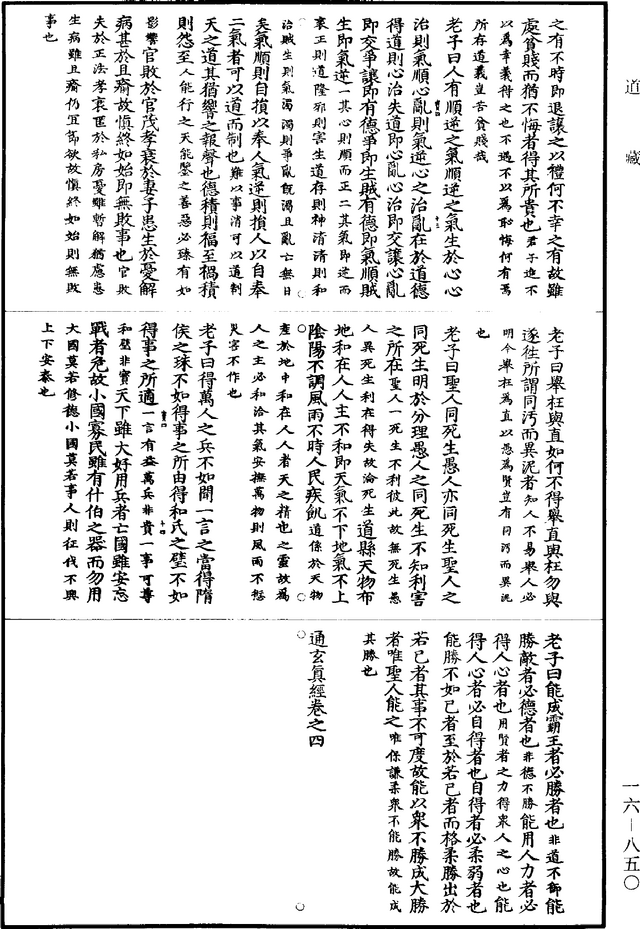 道藏
之有不時即退讓之以禮何不幸之有故雖
處貧賤而猶不悔者得其所貴也君子進不
以為幸義得之也不遇不以為恥悔何有焉
所存道義豈苦貧賤哉
老子曰人有順逆之氣順逆之氣生於心心
治則氣順心亂則氣逆心之治亂在於道德
得道則心治失道即心亂心治即交讓心亂
即交爭讓即有德爭即生賊有德即氣順賊
生即氣逆一其心則順而正二其氣即逆而
衰正則道隆邪則害生道存則神清清則和
治賊生則氣濁濁則爭亂既濁且亂亡無日
矣氣順則自損以奉人氣逆則損人以自奉
二氣者可以道而制也難以事消可以道制
天之道其猶響之報聲也德積則福至禍積
則怨至人能行之天能鑒之善惡必臻有如
影響官敗於官茂孝衰於妻子患生於憂解
病甚於且瘉故慎終如始即無敗事也官敗
失於正法孝衰匿於私房憂雖暫解猶慮患
生病雖且瘉仍宜節欲故慎終如始則無敗
事也
老子曰舉枉與直如何不得舉直與枉勿與
遂往所謂同汚而異泥者知人不易舉人必
明今舉枉為直以愚為賢豈有同汚而異泥
也
老子曰聖人同死生愚人亦同死生聖人之
同死生明於分理愚人之同死生不知利害
之所在聖人一死生不利彼此故無死生愚
人異死生利在得失故淪死生道縣天物布
地和在人人主不和即天氣不下地氣不上
陰陽不調風雨不時人民疾飢道係於天物
產於地中和在人人者天之精也之靈故為
人之主必和洽其氣安撫萬物則風雨不愆
災害不作也
老子曰得萬人之兵不如聞一言之當得隋
侯之珠不如得事之所由得和氏之璧不如
得事之所適一言有益萬兵非貴一事可專
和璧非寶天下雖大好用兵者亡國雖安忘
戰者危故小國寡民雖有什伯之器而勿用
大國莫若修德小國莫若事人則征伐不興
上下安泰也
老子曰能成霸王者必勝者也非道不御能
勝敵者必德者也非德不勝能用人力者必
得人心者也用賢者之力得衆人之心也能
得人心者必自得者也自得者必柔弱者也
能勝不如己者至於若己者而格柔勝出於
若己者其事不可度故能以衆不勝成大勝
者唯聖人能之唯保謙柔衆不能勝故能成
其勝也
通玄真經卷之四
一六—八五〇